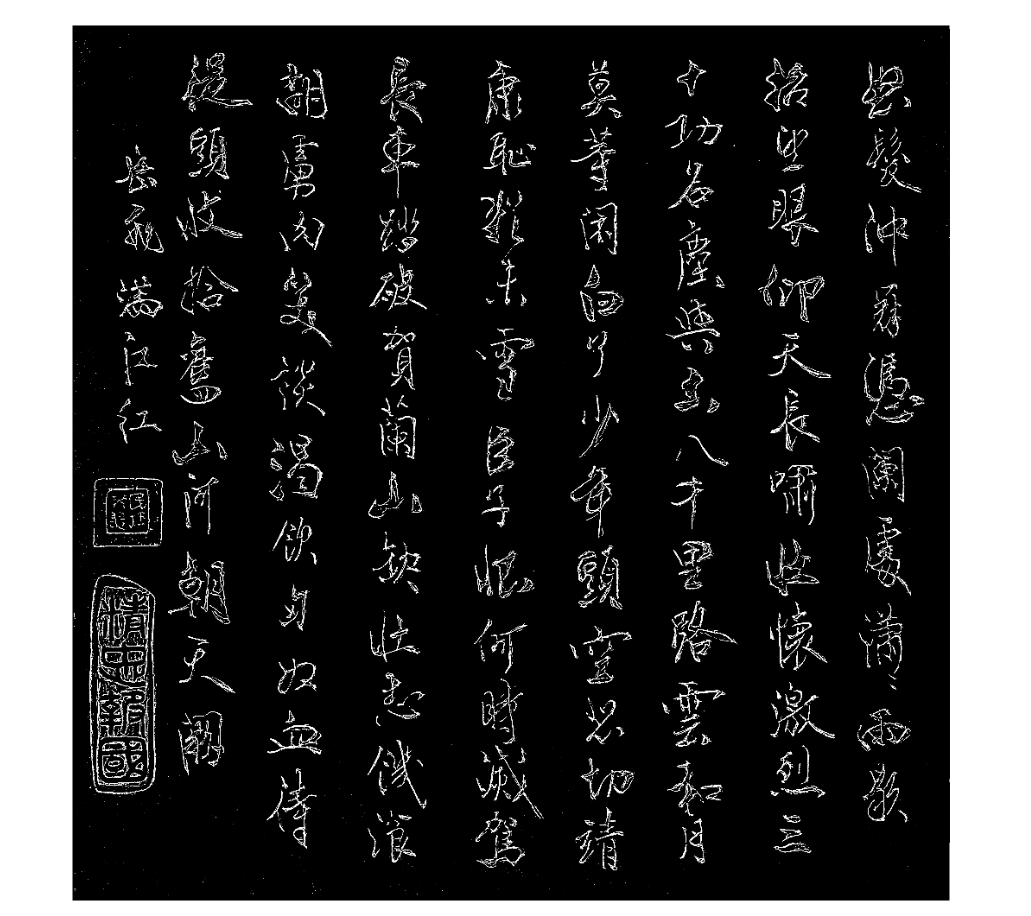 怒髮沖冠憑闌處瀟〻雨歇
抬望眼仰天長嘯壯懷激烈三
十功名塵與土八千里路雲和月
莫等閑白了少年頭空悲切靖
康恥猶未雪臣子恨何時滅駕
長車踏破賀蘭山缺壯志饑飡
胡虜肉笑談渴飲匈奴血待
從頭收拾舊山河朝天闕
岳飛滿江紅
精忠報國